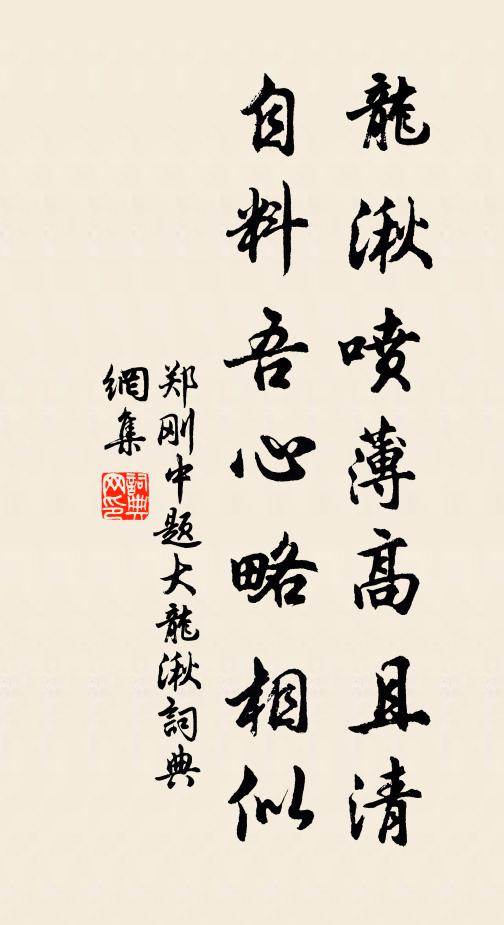 龍湫噴薄高且清
自料吾心略相似
郑刚中题大龍湫詞典
網集
詞典网印